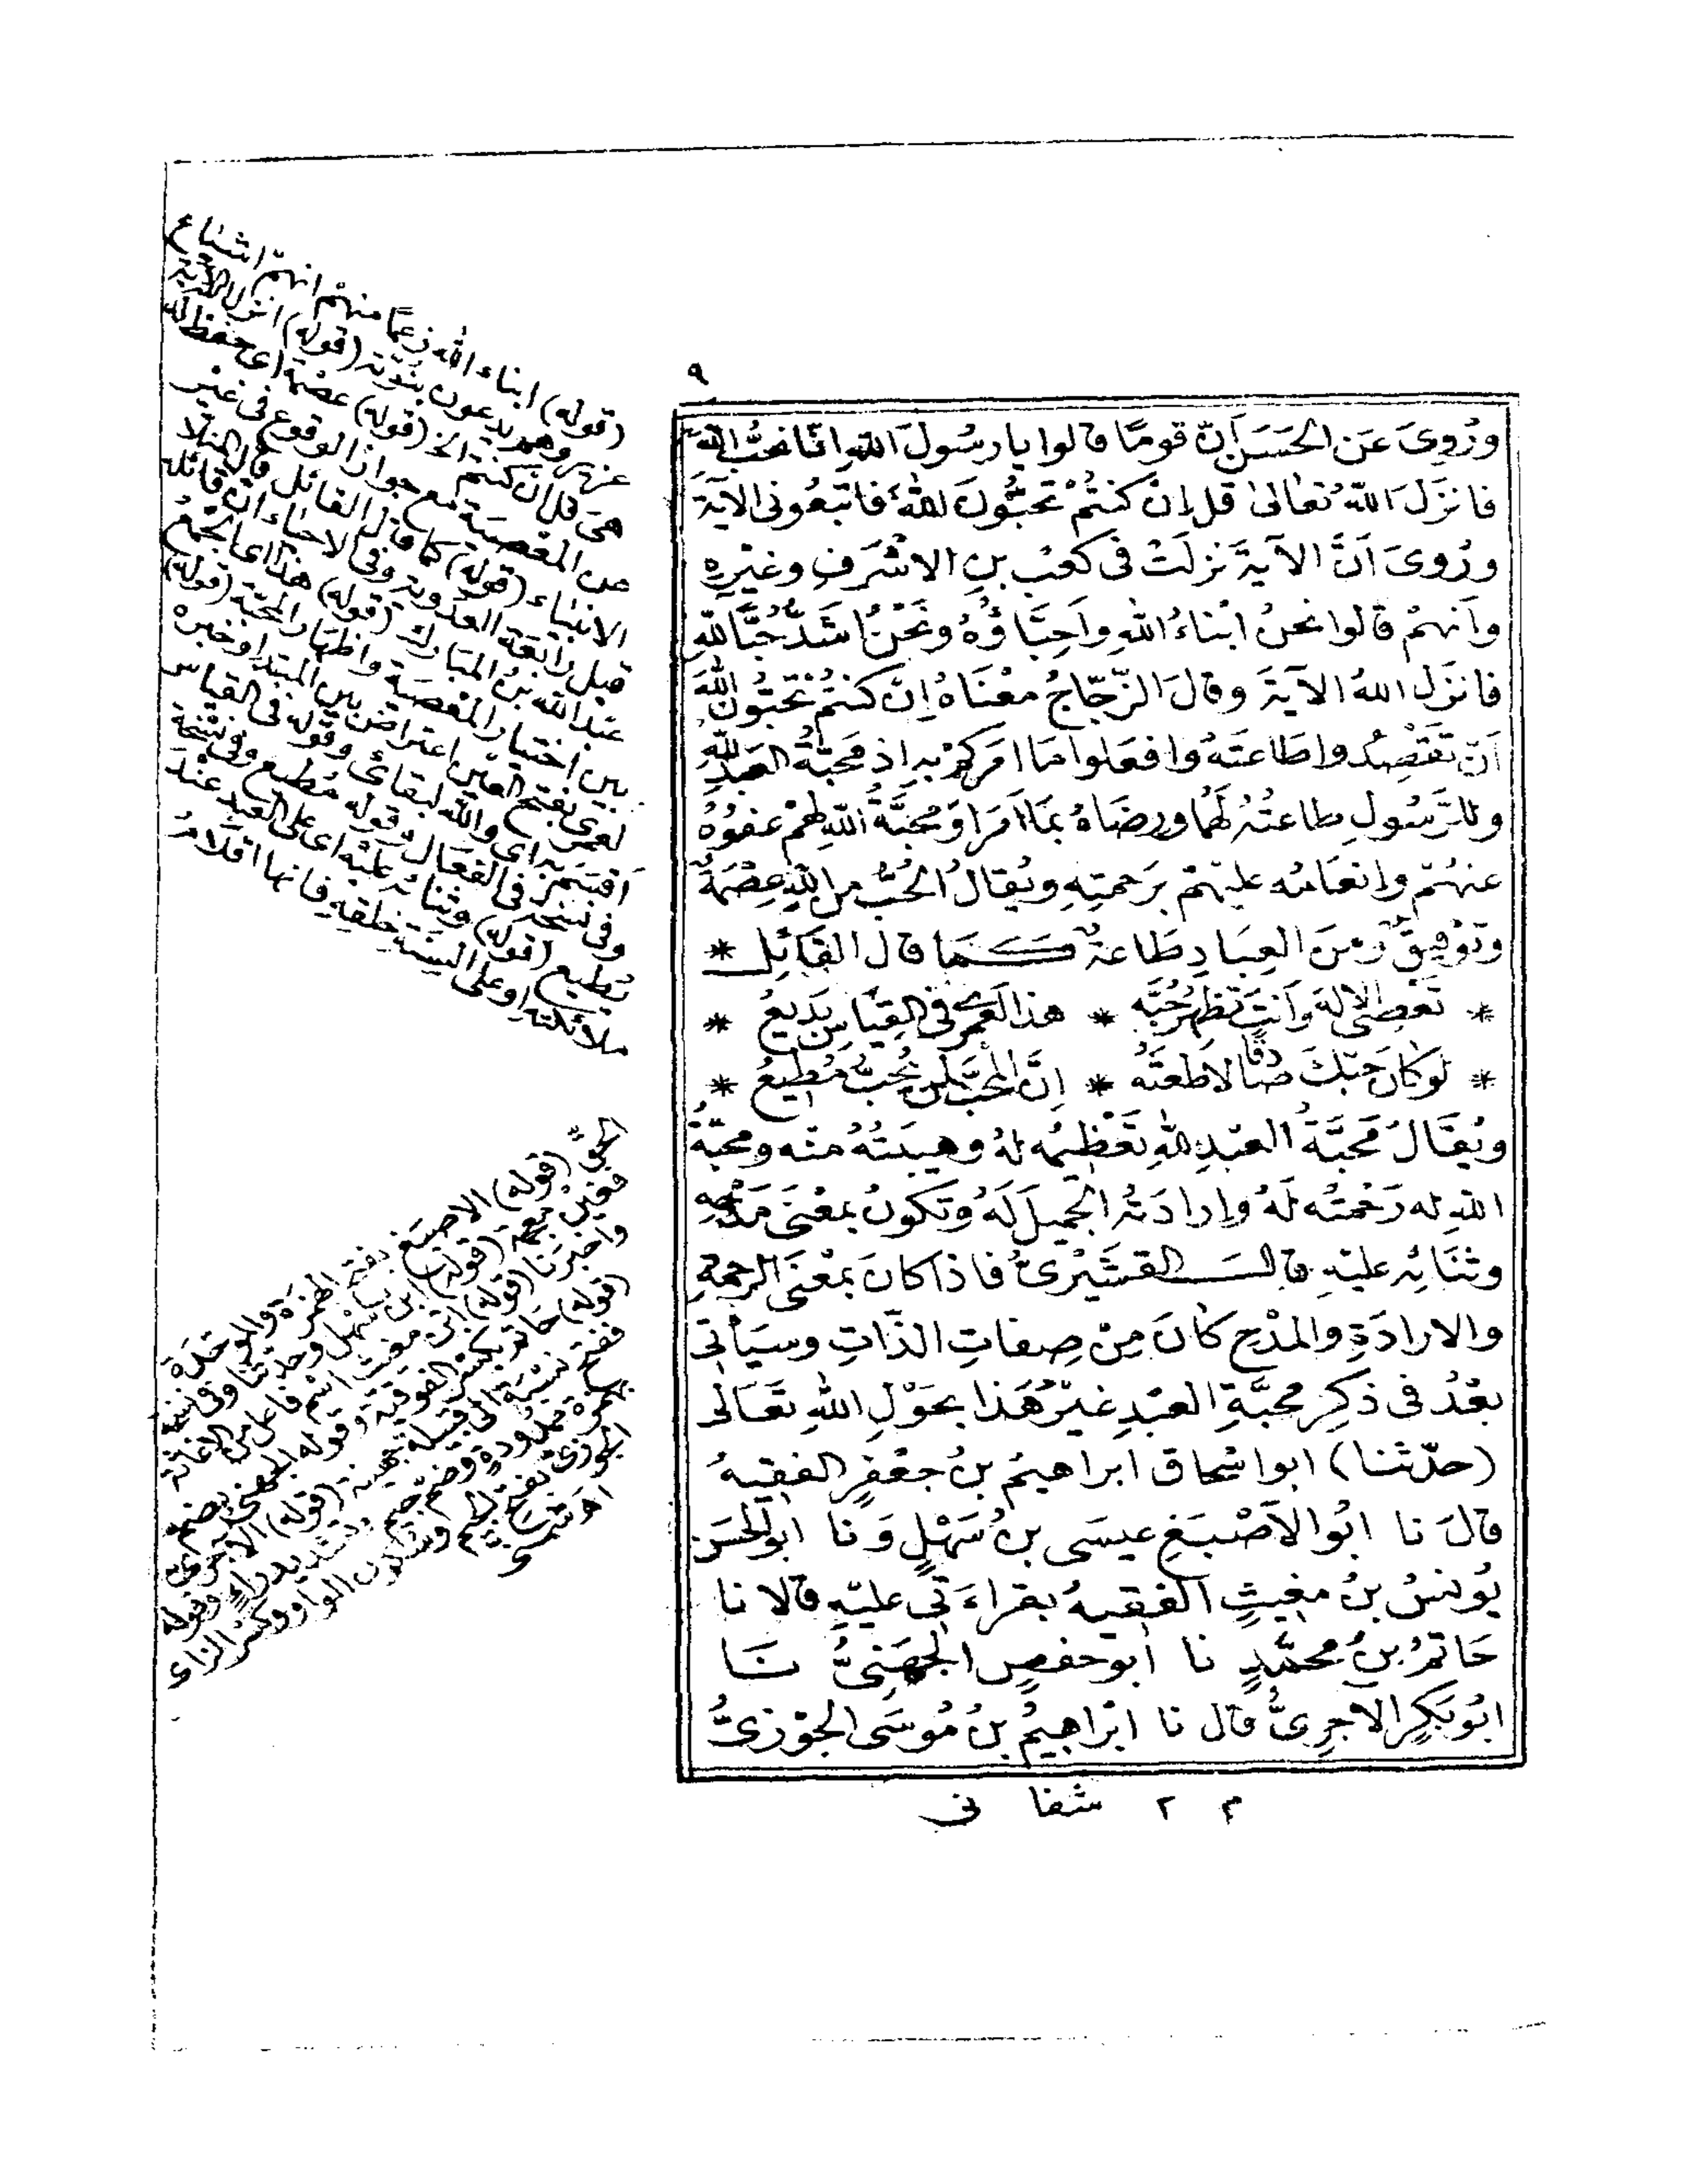 ٩
وَرُوِىَ عَنِ الحَسَنِ أَنّ قومًا قالوا يا رسُولَ اللهِ اِنّا نُحِبُّ اللهَ
فانزَلَ اللهُ تعالىٰ قل اِنْ كنتُمْ تحبُّونَ اللهَ فاتبعُونى الآيَةَ
ورُوىَ اَنَّ الآيةَ نَزلَتْ فى كعْب بنِ الاشْرَفِ وغيْرِهِ
واَنهمْ قالوا نحنُ ابْناءُ اللهِ واَحِبّاؤُهُ ونَحْنُ اَشَدُّ حُبًّا للهِ
فانزَل اللهُ الآيةَ وقالَ الزّجّاجُ معْنَاهُ اِنْ كنتُمْ تُحْبّونَ اللهَ
اَنْ تقْصِدُوا طَاعتَهُ وافعَلوا مَا امَركمْ به اِذ مَحبّةُ العَبْدِ للهِ
وللرَّسُولِ طاعتُهُ لَهُمَا ورضَاهُ بمَا اَمَرَا وَمحبَّةُ اللهِ لهمْ عفوُهُ
عنهُمْ واِنعَامُه عليهمْ برَحمتِهِ ويُقالُ الحُبُّ منَ اللهِ عِصْمَةٌ
وتوْفِيقٌ ومنَ العِبَادِ طَاعةٌ كَمَا قالَ القَائِل *
* تَعْصِى الاِلهَ وَاَنتَ تُظهِرُ حُبَّه * هذا لَعَمْرِى فى القِيَاسِ بَدِيعُ *
* لوْ كانَ حبّكَ صادقًا لاَطَعتَهُ * اِنّ المُحبَّ لِمَنْ يُحِبُّ مُطِيعُ *
ويُقَالُ مَحبَّةُ العَبْدِ للهِ تعْظِيمُه لهُ وهيبَتُهُ منْه ومحبّةُ
اللهِ له رَحْمتُه لَهُ واِرادَتُهُ الجَميلَ لَهُ وتَكونُ بمعْنَى مَدْحِهِ
وثنَائِهِ عليْهِ قالَ القشَيْرىُّ فاذا كانَ بمعْنَى الرحمةِ
والارادَةِ والمدْحِ كانَ مِنْ صِفاتِ الذّاتِ وسيَأتى
بعْدُ فى ذكرِ محبَّةِ العَبْدِ غيْرُ هَذا بحَوْلِ اللهِ تعَالىٰ
(حدّثنا) ابو اسْحاق ابراهيمُ بنُ جعْفرٍ الفقيهُ
قالَ نا ابُو الاَصْبَغِ عيسَى بنُ سَهْلٍ وَنا ابو الحسَن
يُونسُ بنُ مغِيثٍ الفقيهُ بقراءَتى عليْهِ قالا نا
حَاتمُ بنُ محمّدٍ نا اَبو حفصٍ الجُهَنِىُّ نَا
ابُو بَكرٍ الآجرِىُّ قال نا ابْراهِيمُ بنُ مُوسَى الجَوْزِىُّ
م ٢ شفا نى
(قوله) ابناء الله زعمًا منهمْ انهمْ اشياع
عزير وهم يدعون بنوّته (قوله) انزل الآية
هى قل ان كنتم الخ (قوله) عصْمة اى حفظ له
من المعْصيَة مع جواز الوقوع فى غيْر
الانبيَاء (قوله) كما قال القائل
قيل رابعَة العدوية وفى الاحياء انّ قائله
عبْد الله بنُ المبَارك (قوله) هذا اى الجمْعُ
بين اختيار المعْصيَة واظهَار المحبّة (قوله)
لعمرى بفتح العَيْن اعتراض بين المبتدا وخبره
اُقسم به اى والله لبقائى وقوله فى القياس
وفى نسْخة فى الفعَال وقوله مُطيع وفى نسْخة
تطيع (قوله) وثنائه عليْه اى على العبد عنْد
ملائكته او على السِنة خلقه فانها اقلامُ
الحق (قوله) الاصبَغ بفتح الهمْزة والموحّدَة
فغين معجمة (قوله) ابن سَهل وحدثنا وفى نسخة
واخبرَنا (قوله) ابن مغيث اسْم فاعل من الاغاثة
(قوله) حاتم بكسْر الفوقية وقوله الجهنى بضم
ففتح نسْبَة الى قبيلة جُهينة (قوله) الآجرىّ
بهمزة ممدُودة وضم جيم وتشديد راءٍ وقوله
الجوزى بفتح الجيم وسكون الواو وكسْر الزاء